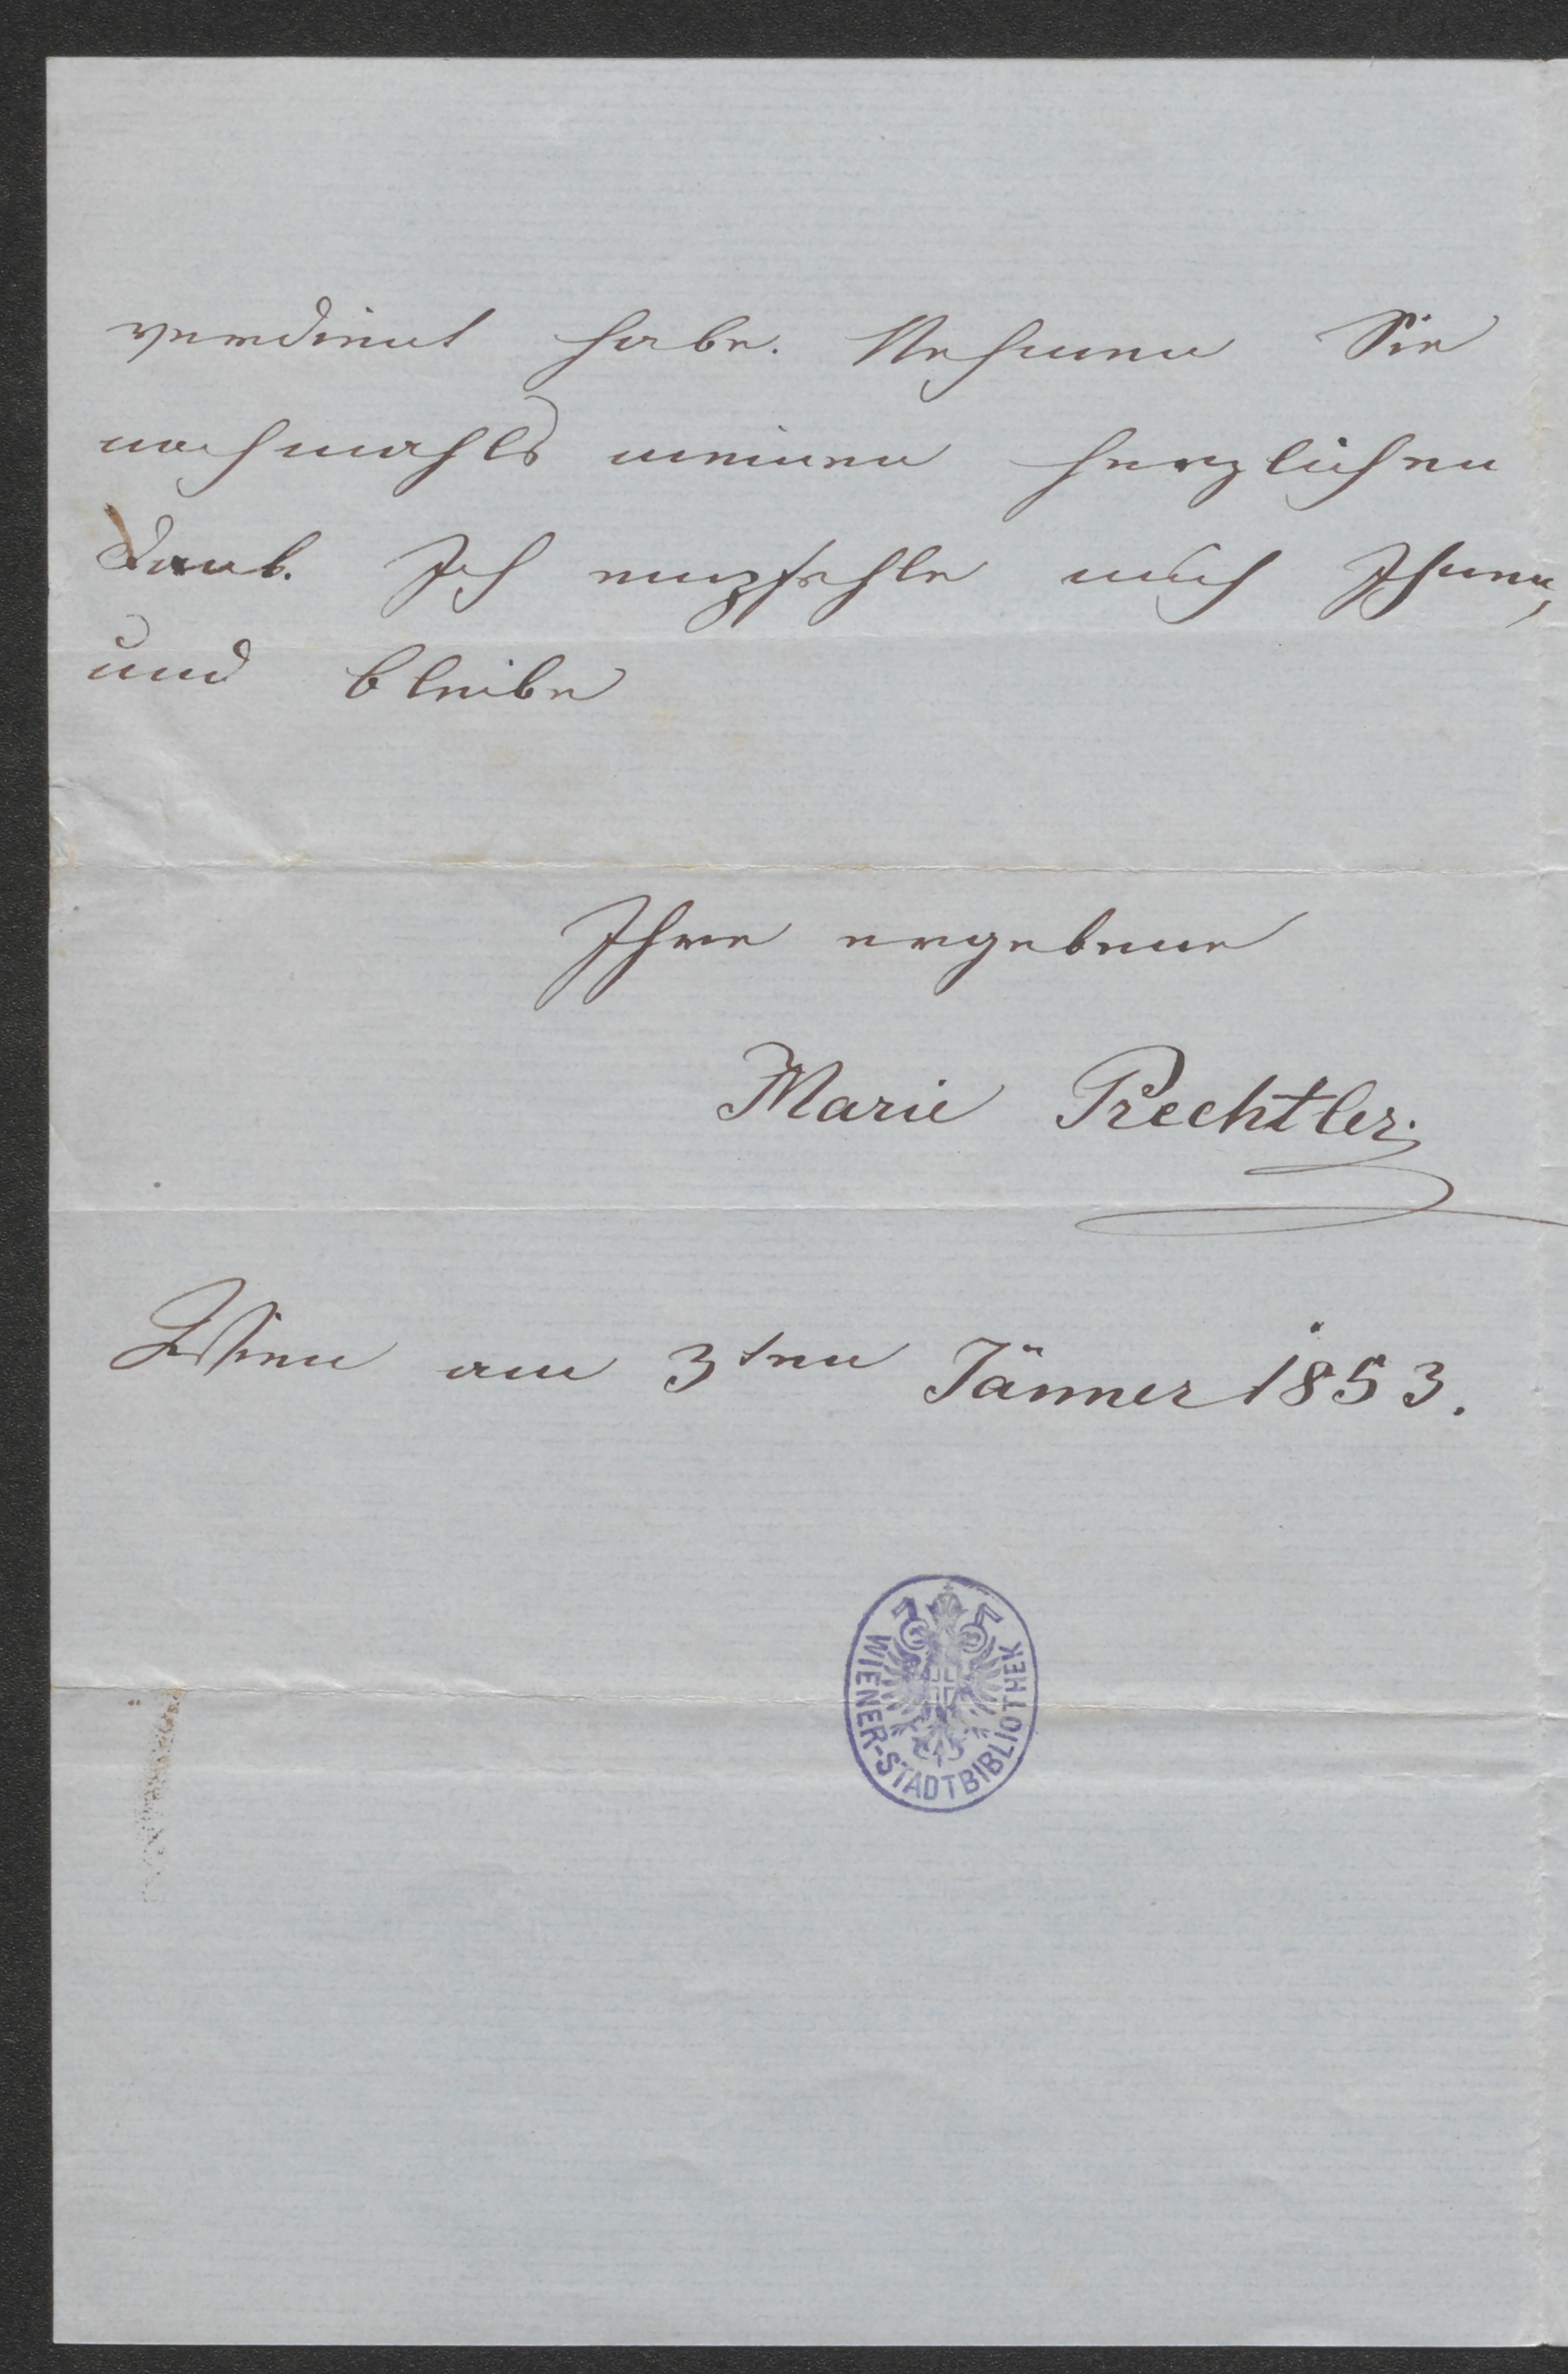 verdient habe. Nehmen Sie
nochmahls meinen herzlichen
Dank. Ich empfehle mich Ihnen,
und bleibe
Ihre ergebene
Marie Prechtler.
Wien am 3ten Jänner 1853.
WIENER-STADTBIBLIOTHEK